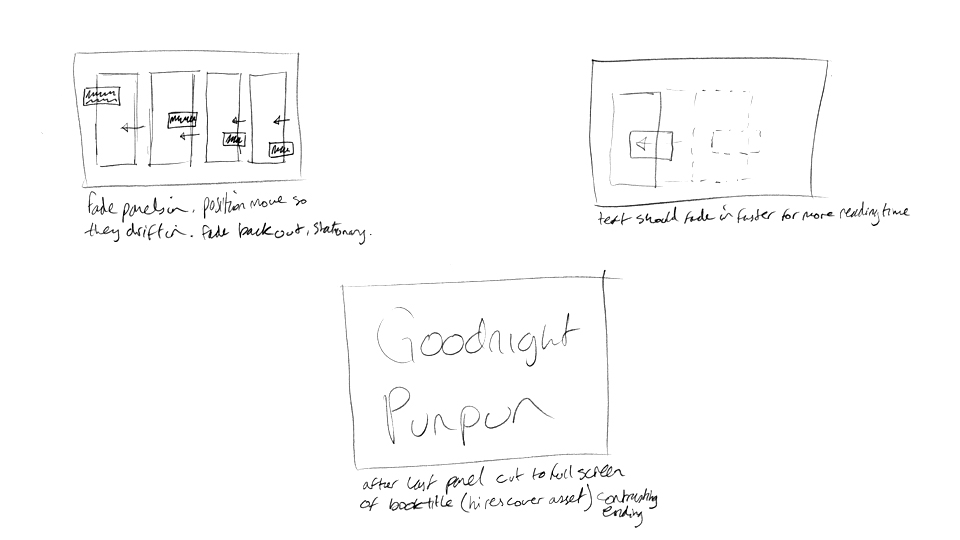 fade panels in. position move so
they drift in. fade back out, stationery.
text should fade in faster for more reading time
Goodnight
Punpun
after last panel cut to full screen
of book title (hi res cover asset) contrasting
ending